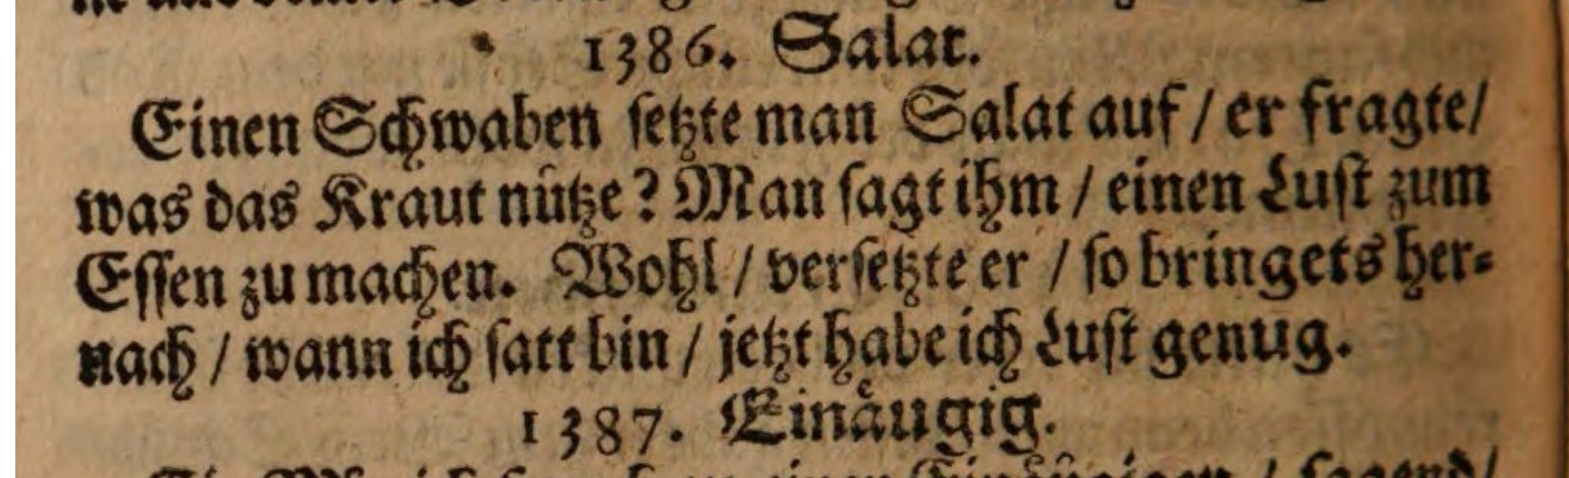 1386. Salat.
Einen Schwaben ſetzte man Salat auf / er fragte/
was das Kraut nütze? Man ſagt ihm / einen Luſt zum
Eſſen zu machen. Wohl / verſetzte er / ſo bringets her⸗
nach / wann ich ſatt bin / jetzt habe ich Luſt genug.
1387. Einäugig.